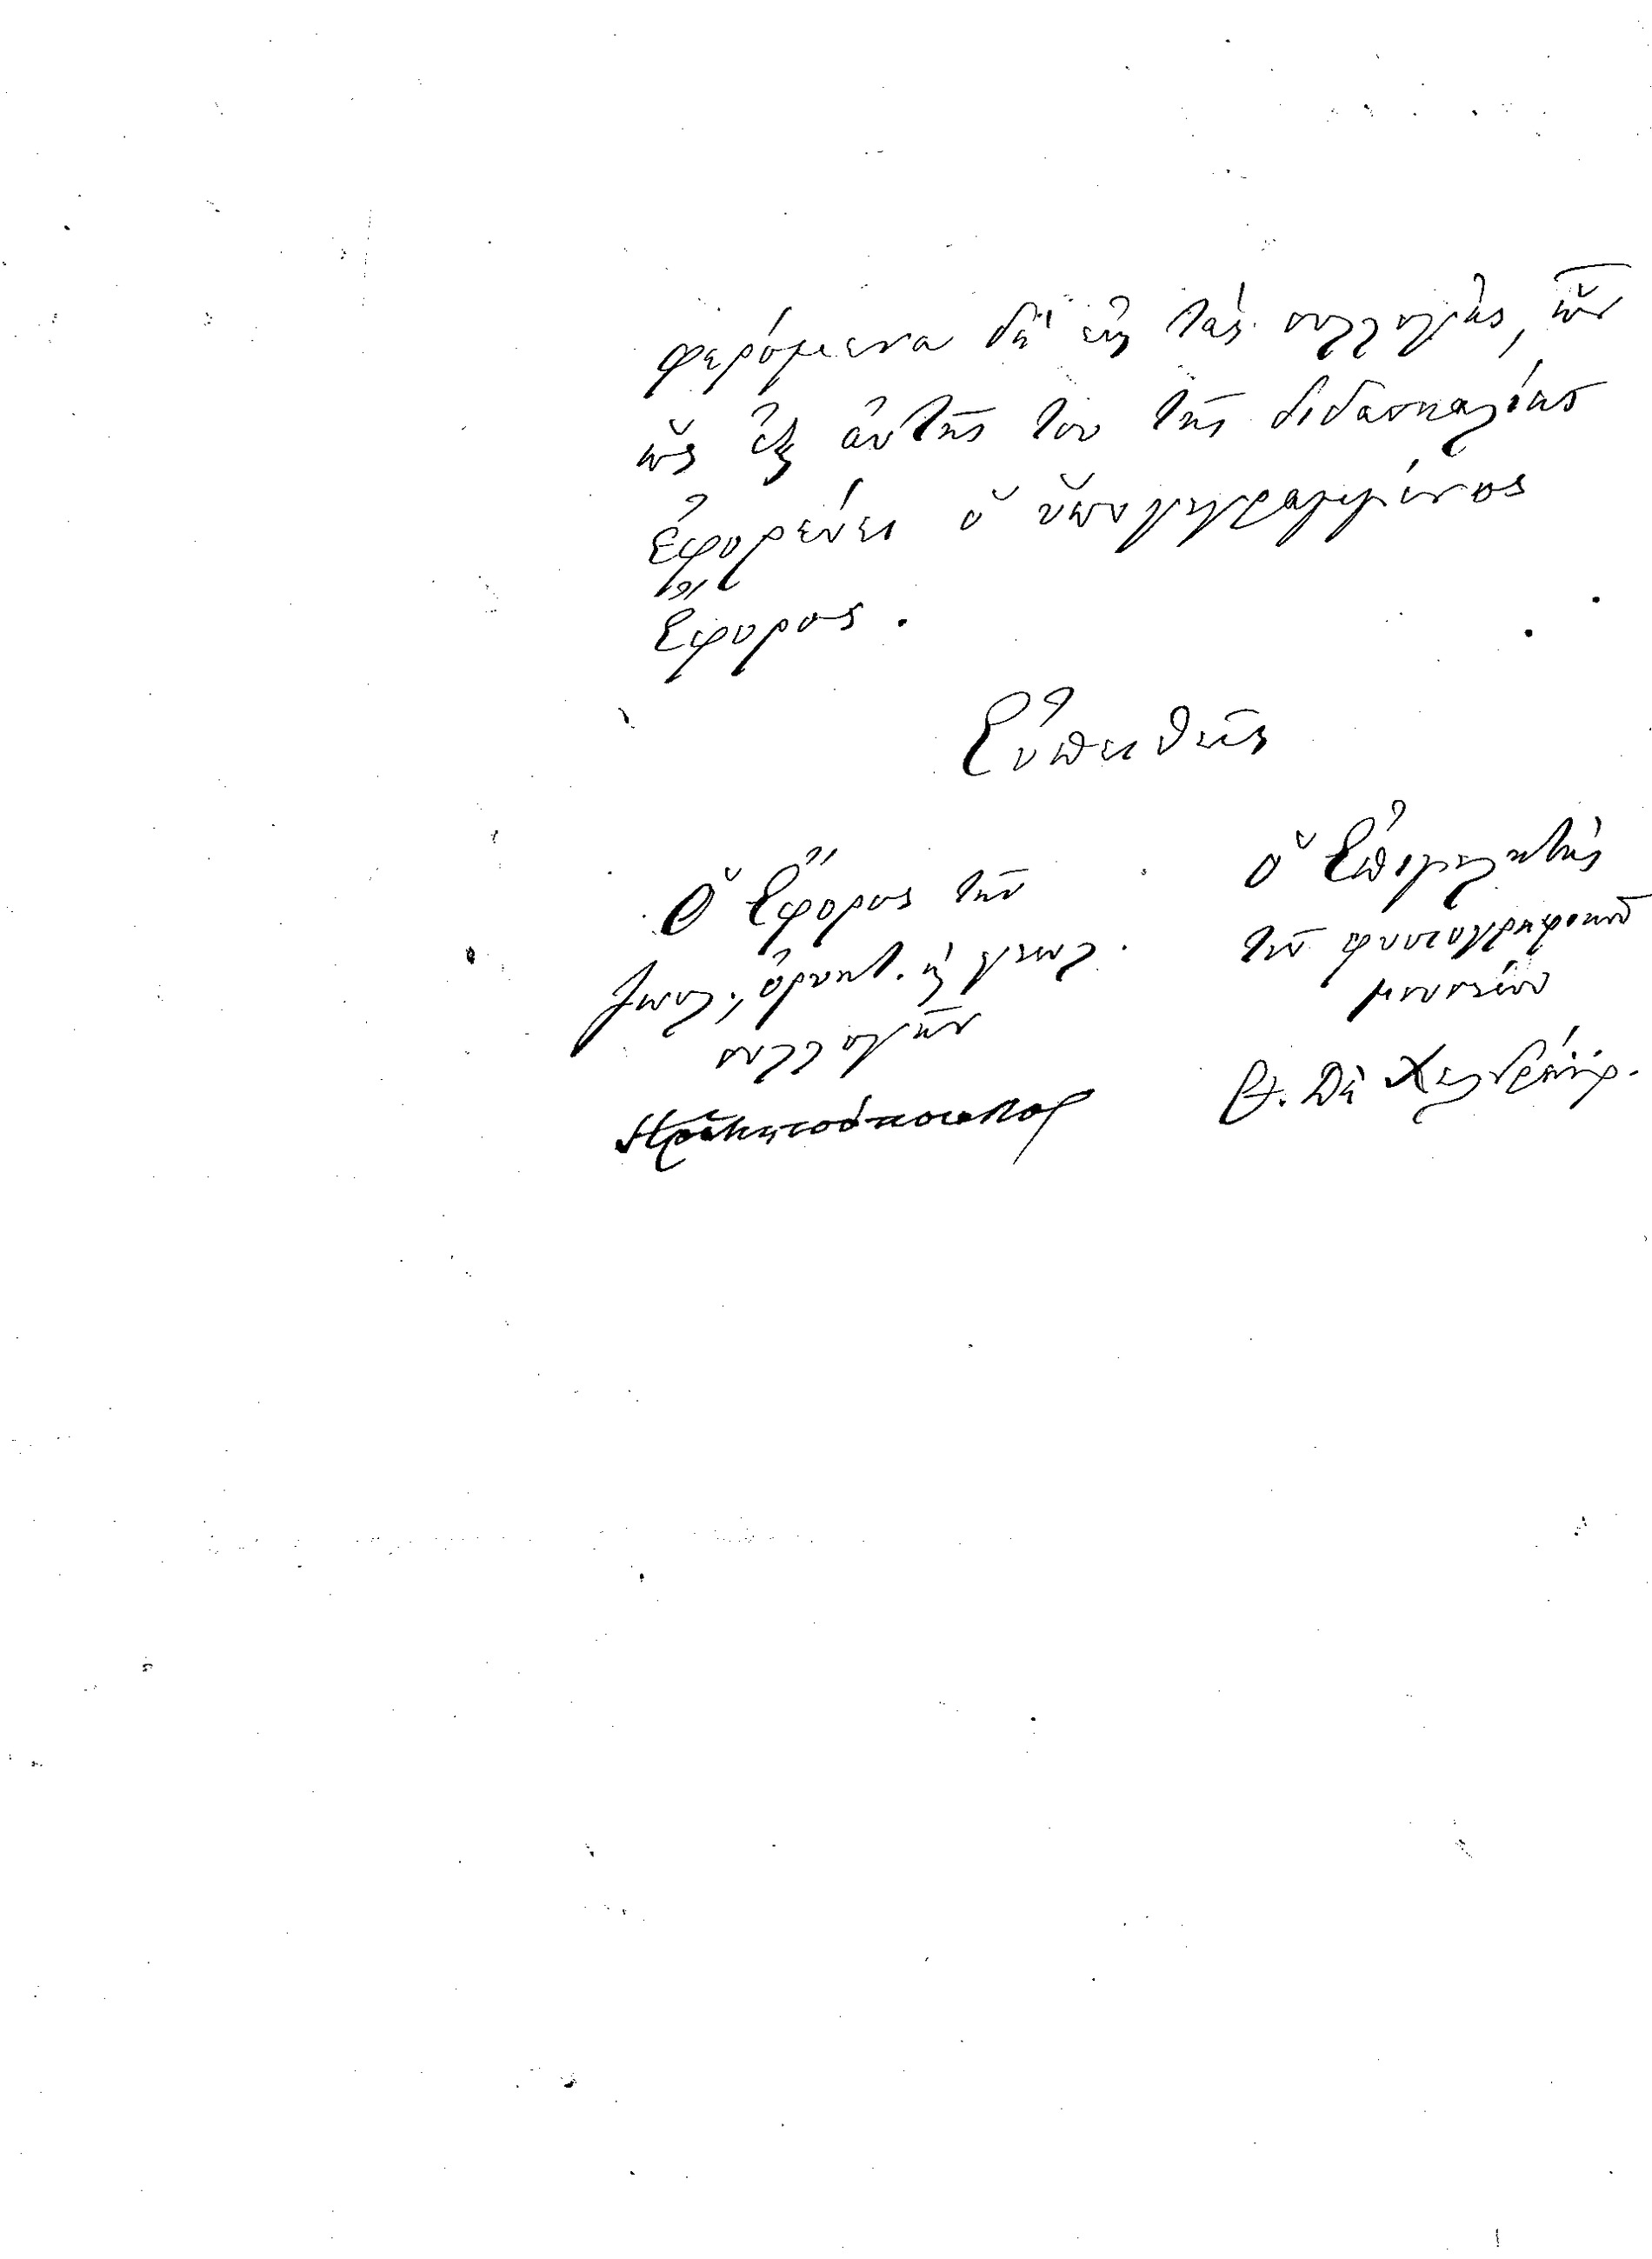 φερόμενα δὲ εἰς τὰς συλλογὰς, ὧν
ὡς ἐκ αὐτῆς του τῆς διδασκαλίας
ἐφορεύει ὁ ὑπογεγραμμένος
Ἔφορος.
Εὐπειθεῖς
Ὁ Ἔφορος τῶν
ζωολ., ὀρυκτ. κ̀ γεωλ.
συλλογῶν
Ὁ Ἐπιμελητὴς
τοῦ φυσιογραφικοῦ
μουσείου
Θ. Δὲ Χελδράιχ.